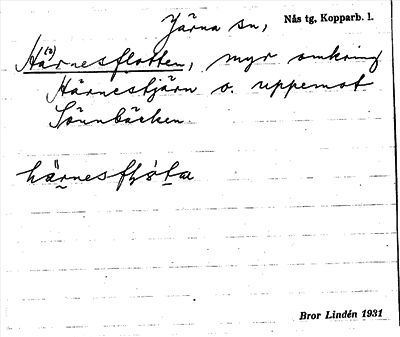 Järna sn, Nås tg, Kopparb. l.
Härnesflotten, myr omkring
Härnestjärn o. uppemot
Sönnbäcken
Bror Lindén 1931